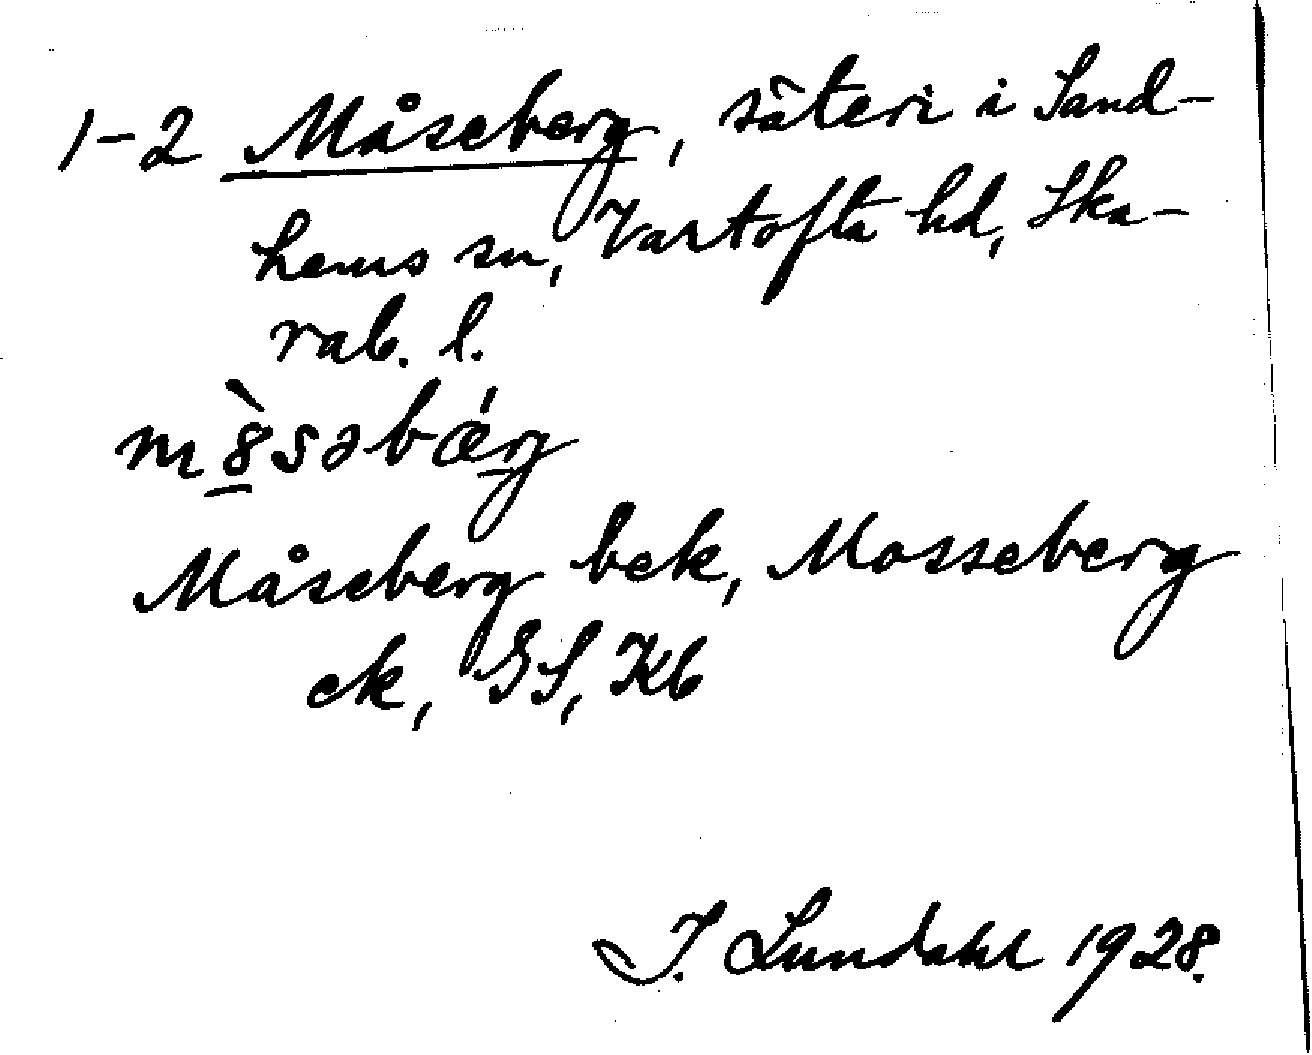 1-2 Måseberg, säteri i Sand-
hems sn, Vartofta hd, Ska-
rab. l.
m8̖̀səbǽrg
Måseberg bek, Mosseberg
ek, GS, Kb
I. Lundahl 1928.